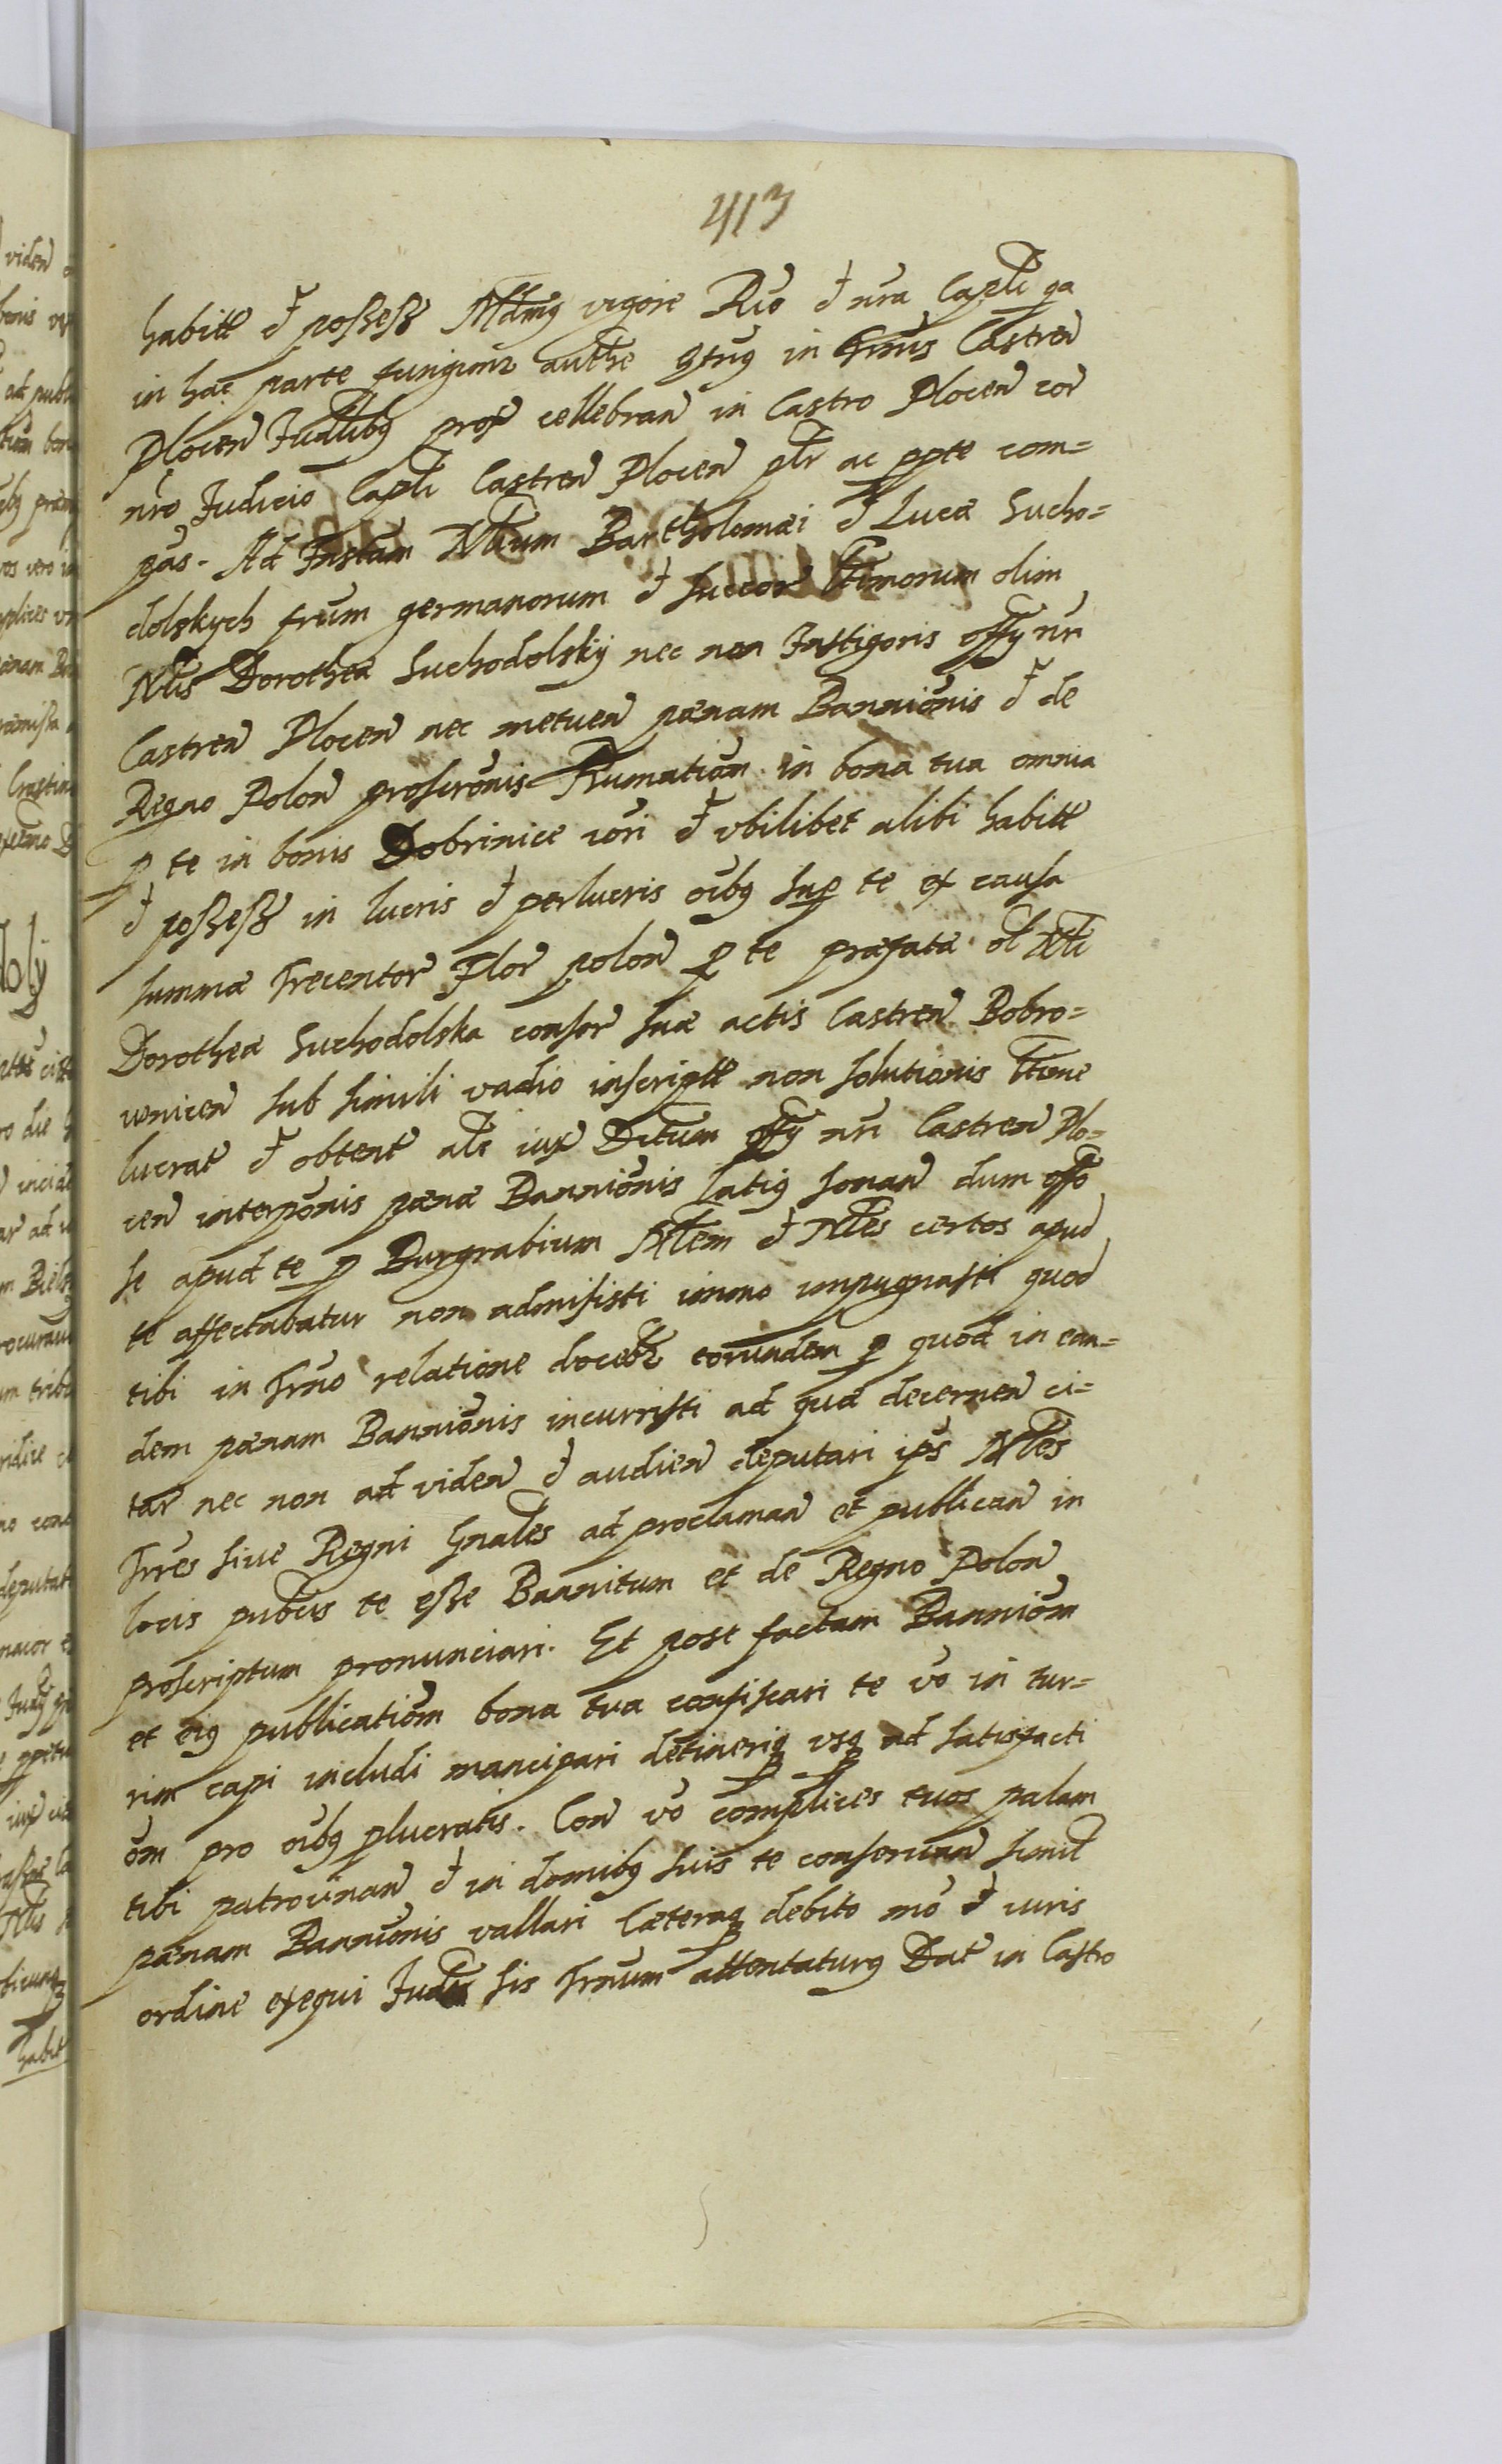 413
habitt et possess Mdmus vigore Rio et nra Capli qa
in hac parte fungimr authe qtus in trnis Castren
Plocen Judlibus prox cellebran in Castro Plocen cor
nro Judicio Capli Castren Plocen plr ac ppte com=
peas. Ad Instam Nlium Bartholomæi et Lucæ Sucho=
dolskych frum germanorum et succor ltimorum olim
Nlis Dorotheæ Suchodolskÿ nec non Instigoris offy nri
Castren Plocen nec metuen pænam Bannionis et de
Regno Polon proscronis Rumatiom in bona tua omnia
p te in bonis Dobrinice vori et vbilibet alibi habitt
et possess in lucris et perlucris oibus sup te ex causa
summæ trecentor Flor polon p te præfatæ ol Nli
Dorotheæ Suchodolska consor suæ actis Castren Bobro=
wnicen sub simili vadio inscriptt non solutionis ltime
lucrat et obtent als iux Dctum offy nri Castren Plo=
cen interponis pænæ Bannionis latius sonan dum offo
se apud te p Burgrabium Nlem et Nles certos apud
te affectabatur non admisisti immo impugnasti quod
tibi in trno relatione docebr eorundem p quod in ean=
dem pænam Bannionis incurristi ad quæ decernen ci=
tar nec non ad viden et audien deputari ips Nles
trres siue Regni Gnales ad proclaman et publican in
locis pubcis te esse Bannitum et de Regno Polon
proscriptum pronunciari. Et post factam Banniom
et eius publicatiom bona tua confiscari te vo in tur=
rim capi includi mancipari detinerique vsque ad satisfacti
om pro oibus plucratis. Con vo complices tuos palam
tibi patrocinan et in domibus suis te conseruan simil
pænam Bannionis vallari Cæteraque debito mo et iuris
ordine exequi Judr sis trnum attentaturus Dat in Castro